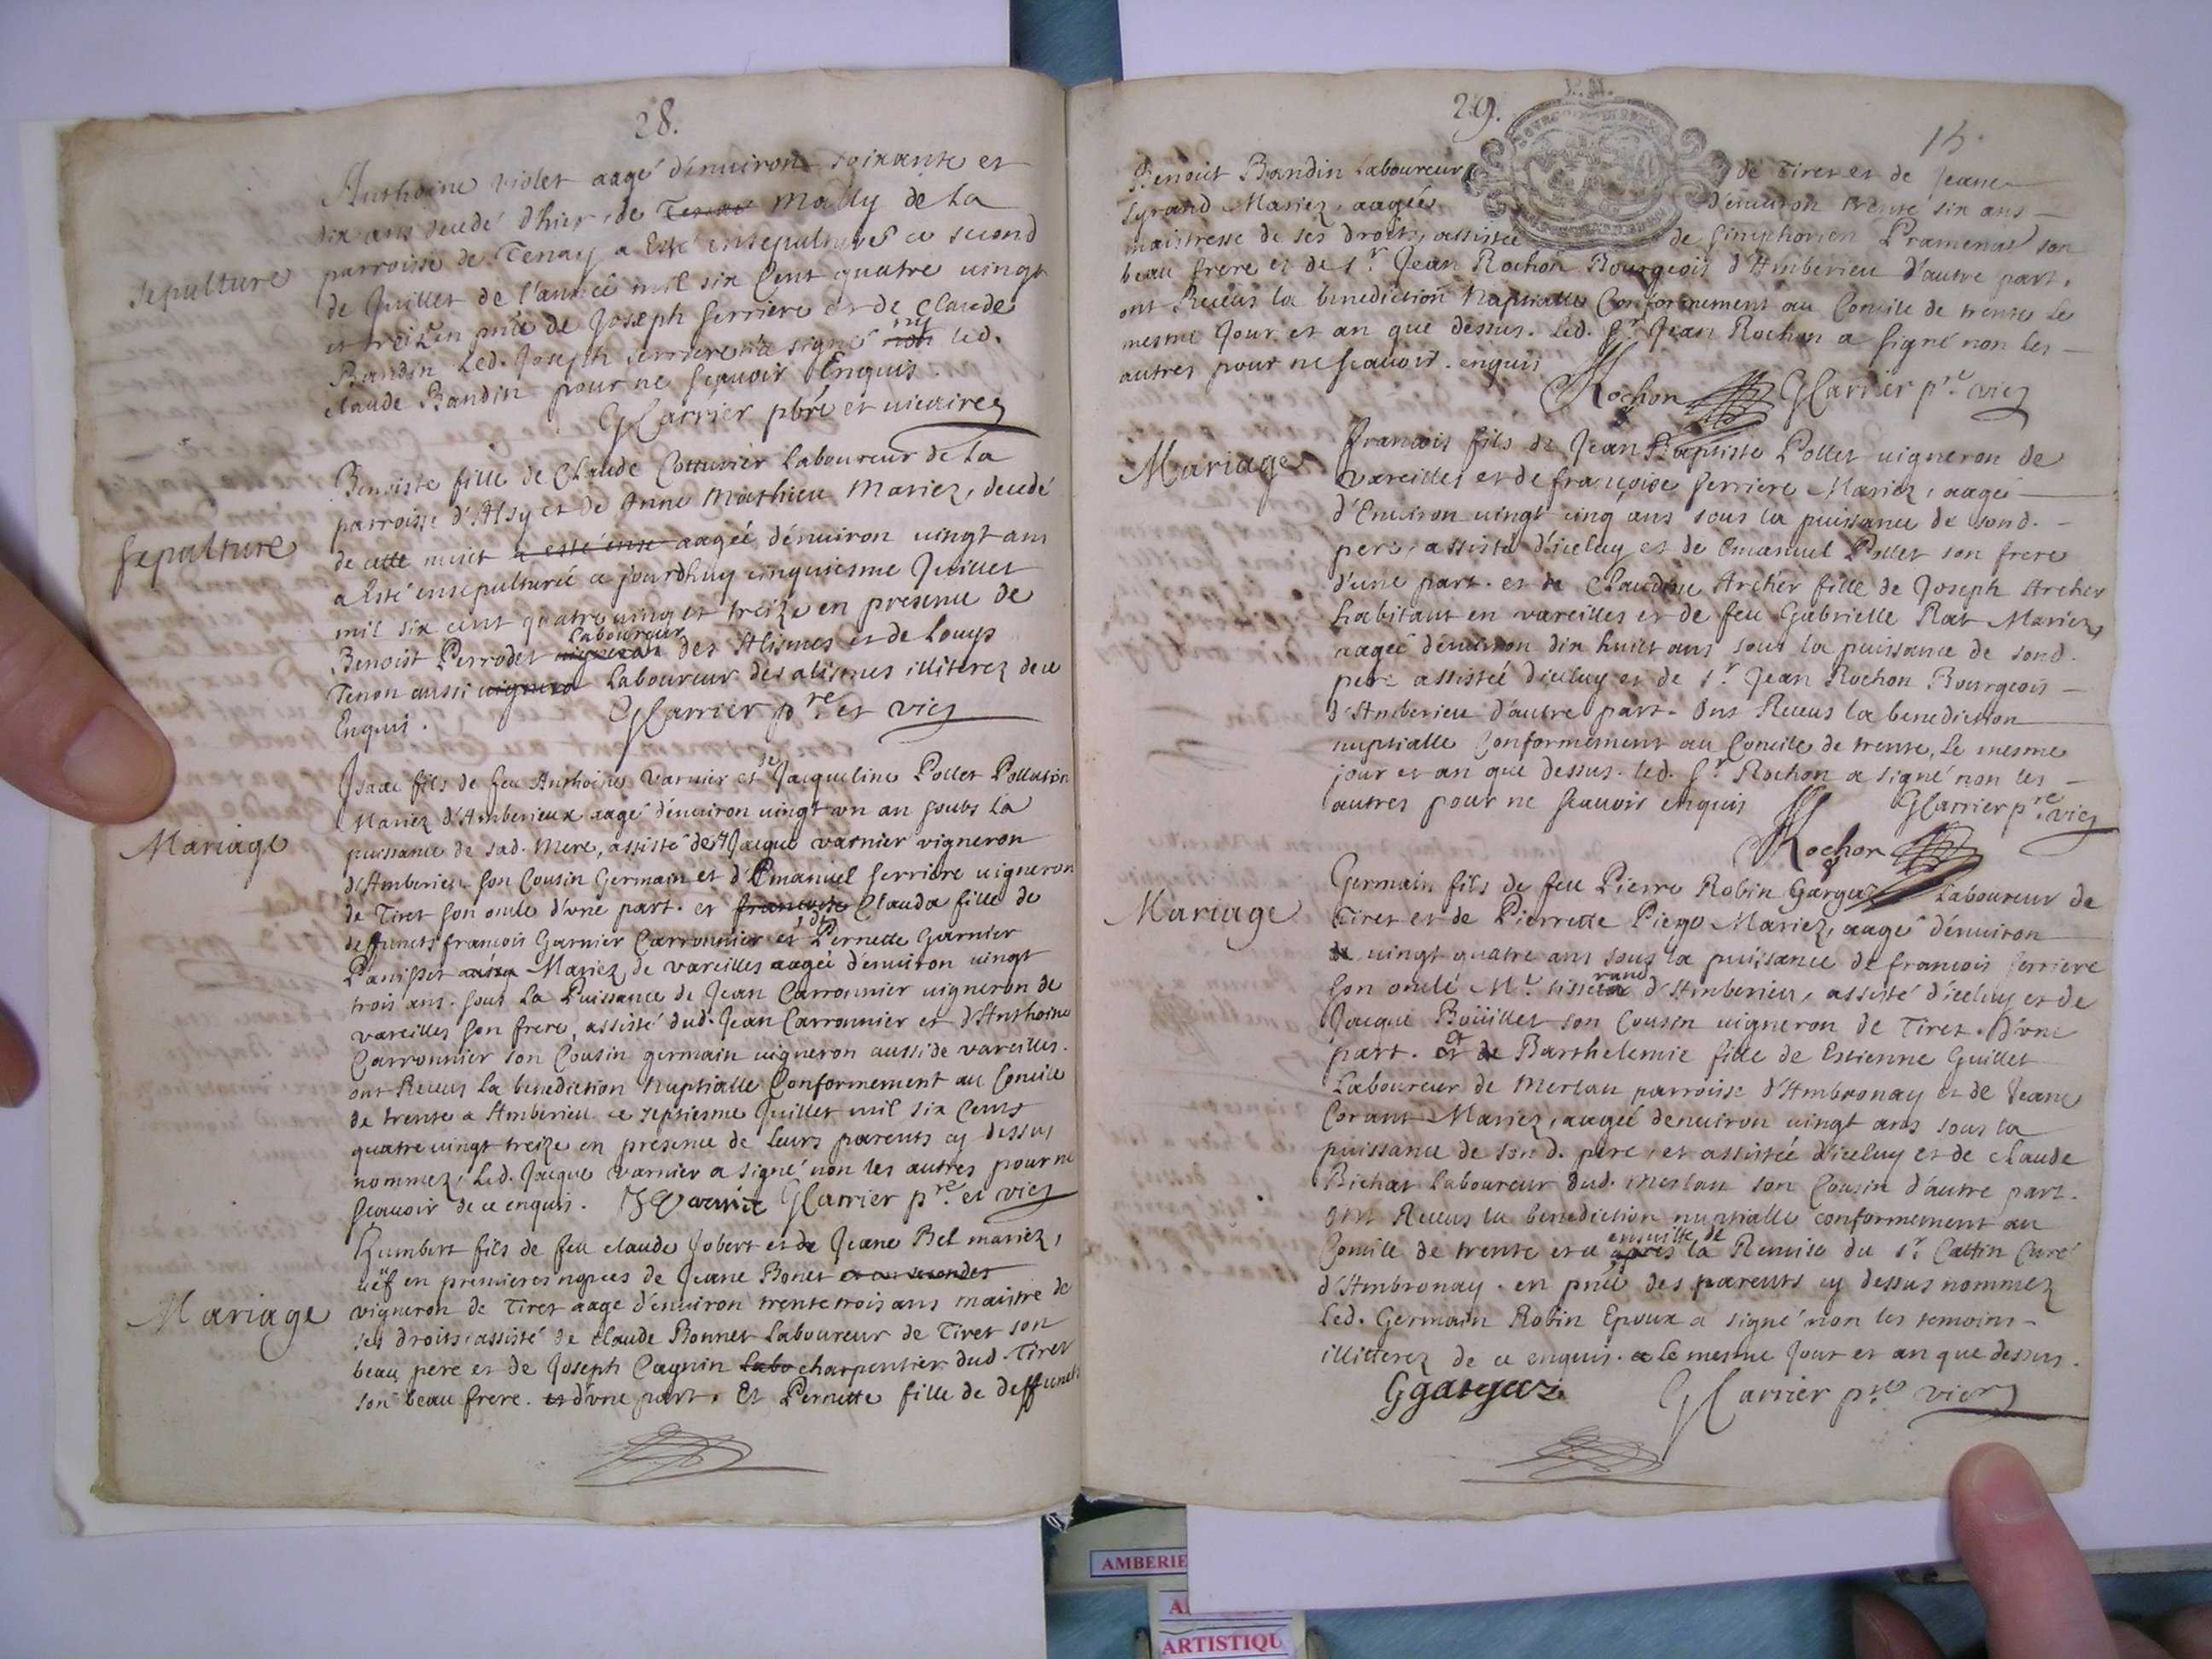 28.
Anthoine violet aagé d'enuiron soixante et
dix ans decedé d'hier, de Tenay Mally de La
Sepulture
parroisse de Tenay a Esté ensepulturé ce second
de Juillet de l'année mil six Cent quatre vingt
et treize en pnce de Joseph ferriere et de Claude
Bandin Led. Joseph ferriere n'a signé non ny led.
claude Bandin pour ne scauoir Enquis.
GCarrier pbre et vicaire
Benoiste fille de Claude Cottuvier Laboureur de La
parroisse d'Alsy et de Anne Mathieu Mariez, decedé
Sepulture
de cette nuit a esté ense aagée d'enuiron vingt ans
a Esté ensepulturée ce jourdhuy cinquiesme Juillet
mil six cent quatre vingt et treize en presence de
Benoist Perrodet vigneron Laboureur des Alismes et de Louys
Tenon aussi vigneron Laboureur des alismes illiterez de ce
Enquis. GCarrier pre et vic
Isaac fils de feu Anthoine Varnier et de Jacqueline Pollet Pollutin
Mariez d'Amberieux aagé d'enuiron vingt vn an soubs La
Mariage
puissance de sad. Mere, assisté de Jacque varnier vigneron
d'Amberieu son Cousin Germain et d'Emanuel ferriere vigneron
de Tiret son oncle d'vne part. et francoise Clauda fille de
deffuncts francois Garnier Carronnier et de Pernette Garnier
Panisset Mariez de vareilles aagée d'enuiron vingt
trois ans. sous La Puissance de Jean Carronnier vigneron de
vareilles son frere, assisté dud. Jean Carronnier et d'Anthoine
Carronnier son Cousin germain vigneron aussi de vareilles.
ont Receus La benediction Nuptialle Conformement au Concile
de trente a Amberieu ce septiesme Juillet mil six Cents
quatre vingt treize en presence de Leurs parents cy dessus
nommez, Led. Jacque varnier a signé non les autres pour ne
scauoir de ce enquis. J Varnier GCarrier pre et vic
Humbert fils de feu claude Jobert et de Jeane Bel mariez,
vëf en premieres nopces de Jeane Bonet et en secondes
Mariage
vigneron de Tiret aagé d'enuiron trente trois ans maistre de
ses droits, assisté de claude Bonnet Laboureur de Tiret son
beau pere et de Joseph Cagnin Labo charpentier dud. Tiret
son beau frere. et d'vne part. Et Pernette fille de deffuncts
29.
15.
Benoist Bandin Laboureur de Tiret et de Jeane
Syrand Mariez, aagée d'enuiron trente six ans
maistresse de ses droits, assistée de Simphorien Pramenas son
beau frere et de Sr Jean Rochon Bourgeois d'Amberieu d'autre part.
ont Receus la benediction Nuptialle Conformement au Concile de trente Le
mesme Jour et an que dessus. Led. Sr Jean Rochon a signé non les
autres pour ne scauoir. enquis
JRochon GCarrier pre vic
Mariage
francois fils de Jean Baptiste Pollet vigneron de
vareilles et de françoise ferriere Mariez, aagé
d'Enuiron vingt cinq ans sous la puissance de sond.
pere, assisté d'iceluy et de Emanuel Pollet son frere
d'une part. et de Claudine Archer fille de Joseph Archer
habitant en vareilles et de feu Gabrielle Rat Mariez,
aagée d'enuiron dix huict ans sous la puissance de sond.
pere assistée d'iceluy et de Sr Jean Rochon Bourgeois
d'Amberieu d'autre part. Ont Receus la benediction
nuptialle Conformement au Concile de trente, Le mesme
jour et an que dessus. led. Sr Rochon a signé non les
autres pour ne scauoir enquis GCarrier pre vic
JRochon
Germain fils de feu Pierre Robin Gargaz Laboureur de
Mariage
Tiret et de Pierrette Piego Mariez, aagé d'enuiron
de vingt quatre ans sous la puissance de francois ferriere
son oncle Me tisserand d'Amberieu, assisté d'iceluy et de
Jacque Boüillet son Cousin vigneron de Tiret. D'vne
part. Et de Barthelemie fille de Estienne Guillet
Laboureur de Merlan parroise d'Ambronay et de Jeane
Corant Mariez, aagée d'enuiron vingt ans sous la
puissance de sond. pere, et assistée d'iceluy et de claude
Bichat Laboureur dud. Merlan son Cousin d'autre part.
Ont Receus la benediction nuptialle conformement au
Concile de trente et a apres ensuitte de la Remise du Sr Cattin Curé
d'Ambronay. en pnce des parents cy dessus nommez
Led. Germain Robin Epoux a signé non les temoins
illitterez de ce enquis. a le mesme Jour et an que dessus.
Ggargaz GCarrier pre vic
AMBERIE
ARTISTIQU